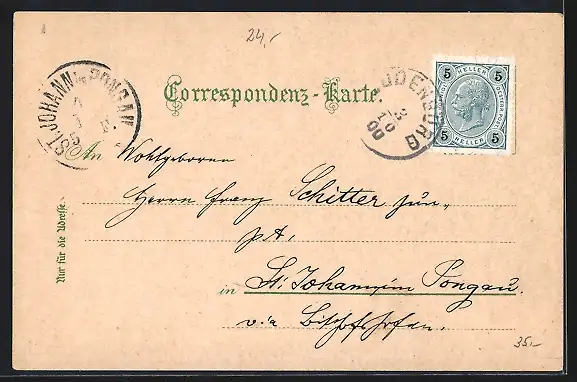 24,-
ST. JOHANN i. PONGAU
Correspondenz-Karte.
UDENBURG
3
10
00
5 HELLER 5
5 HELLER 5
An Wohlgeboren
Herrn Franz Schitter jun.
pt,
in St. Johann im Pongau.
via Bischofshofen.
Nur für die Adresse.
35.-